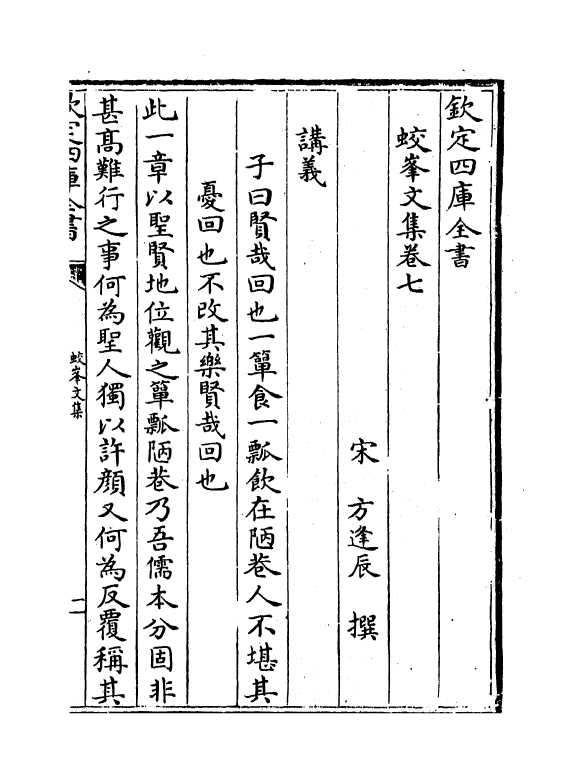 欽定四庫全書
蛟峯文集卷七
宋 方逢辰 撰
講義
子曰賢哉回也一簞食一瓢飲在陋巷人不堪其
憂回也不改其樂賢哉回也
此一章以聖賢地位觀之簞瓢陋巷乃吾儒本分固非
甚髙難行之事何為聖人獨以許顔又何為反覆稱其
欽定四庫全書
蛟峯文集